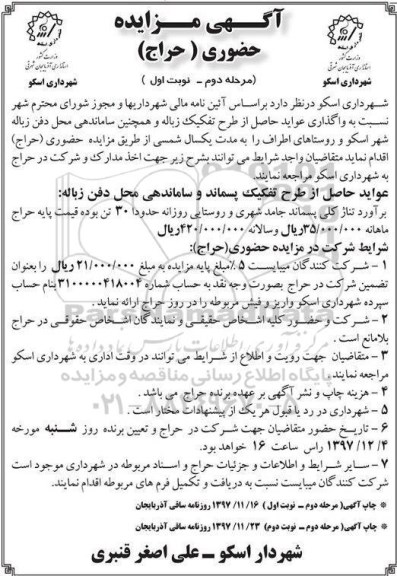 آگـهـی مـــزایـده
حضوری ( حراج )
(مرحله دوم ـ نوبت اول )
وزارت کشور
استانداری آذربایجان شرقی
شهرداری اسکو
وزارت کشور
استانداری آذربایجان شرقی
شهرداری اسکو
شـهرداری اسکو درنظر دارد براساس آئین نامه مالی شهرداریها و مجوز شورای محترم شهر
نسبت به واگذاری عواید حاصل از طرح تفکیک زباله و همچنین ساماندهی محل دفن زباله
شهر اسکو و روستاهای اطراف را به مدت یکسال شمسی از طریق مزایده حضوری (حراج)
اقدام نماید متقاضیان واجد شرایط می توانند بشرح زیر جهت اخذ مدارک و شرکت در حراج
به شهرداری اسکو مراجعه نمایند.
عواید حاصل از طرح تفکیک پسماند و ساماندهی محل دفن زباله:
برآورد تناژ کلی پسماند جامد شهری و روستایی روزانه حدودا ۳۰ تن بوده قیمت پایه حراج
ماهانه ۳۵/۰۰۰/۰۰۰ریال وسالانه ۴۲۰/۰۰۰/۰۰۰ریال
شرایط شرکت در مزایده حضوری(حراج):
۱ – شـرکت کنندگان میبایست ۵٪مبلغ پایه مزایده به مبلغ ۲۱/۰۰۰/۰۰۰ ریال را بعنوان
تضمین شرکت در حراج بصورت وجه نقد به حساب شماره ۳۱۰۰۰۰۰۴۱۸۰۰۴ بنام حساب
سپرده شهرداری اسکو واریز و فیش مربوطه را در روز حراج ارائه نماید .
۲ – شـرکت و حضور کلیه اشـخاص حقیقـی و نمایندگان اشـخاص حقوقـی در حراج
بلامانع است .
۳ – متقاضیان جهت رویت و اطلاع از شـرایط می توانند در وقت اداری به شهرداری اسکو
مراجعه نمایند.
۴ – هزینه چاپ و نشر آگهی بر عهده برنده حراج می باشد .
۵ – شهرداری در رد یا قبول هر یک از پیشنهادات مختار است .
۶ – تاریـخ حضور متقاضیان جهت شـرکت در حراج و تعیین برنده روز شـنبه مورخه
۱۳۹۷/۱۲/۴ راس ساعت ۱۶ خواهد بود.
۷ – سـایر شـرایط و اطلاعات و جزئیات حراج و اسـناد مربوطه در شهرداری موجود است
شرکت کنندگان میبایست نسبت به دریافت و تکمیل فرم های مربوطه اقدام نمایند.
* چاپ آگهی( مرحله دوم ـ نوبت اول) ۱۳۹۷/۱۱/۱۶ روزنامه ساقی آذربایجان
* چاپ آگهی( مرحله دوم ـ نوبت دوم) ۱۳۹۷/۱۱/۲۳ روزنامه ساقی آذربایجان
شهردار اسکو ـ علی اصغر قنبری